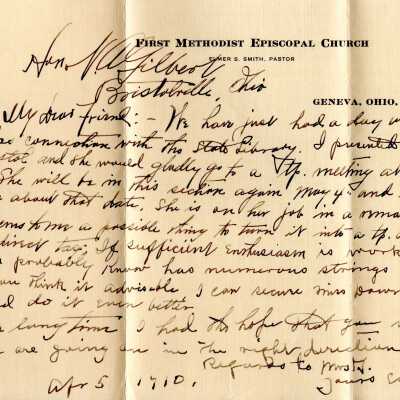 First Methodist Episcopal Church
Elmer S. Smith, Pastor
Hon. N. A. Gilbert,
Bristolville, Ohio
Geneva, Ohio.
My Dear Friend:- We have just had a day
connection with the State Library. I presented
and she would gladly go to a Tp. meeting at
She will be in this section again May 4 and
about that date. She is on her job in a
to me a possible thing to turn it into a tp.
direct tax. If sufficient Enthusiasm is
probably know has numerous strings
think it advisable I can secure miss
do it even better.
long time I had the hope that you
are going on in the right direction
Regards to Mrs.
Yours
Apr 5 1910.